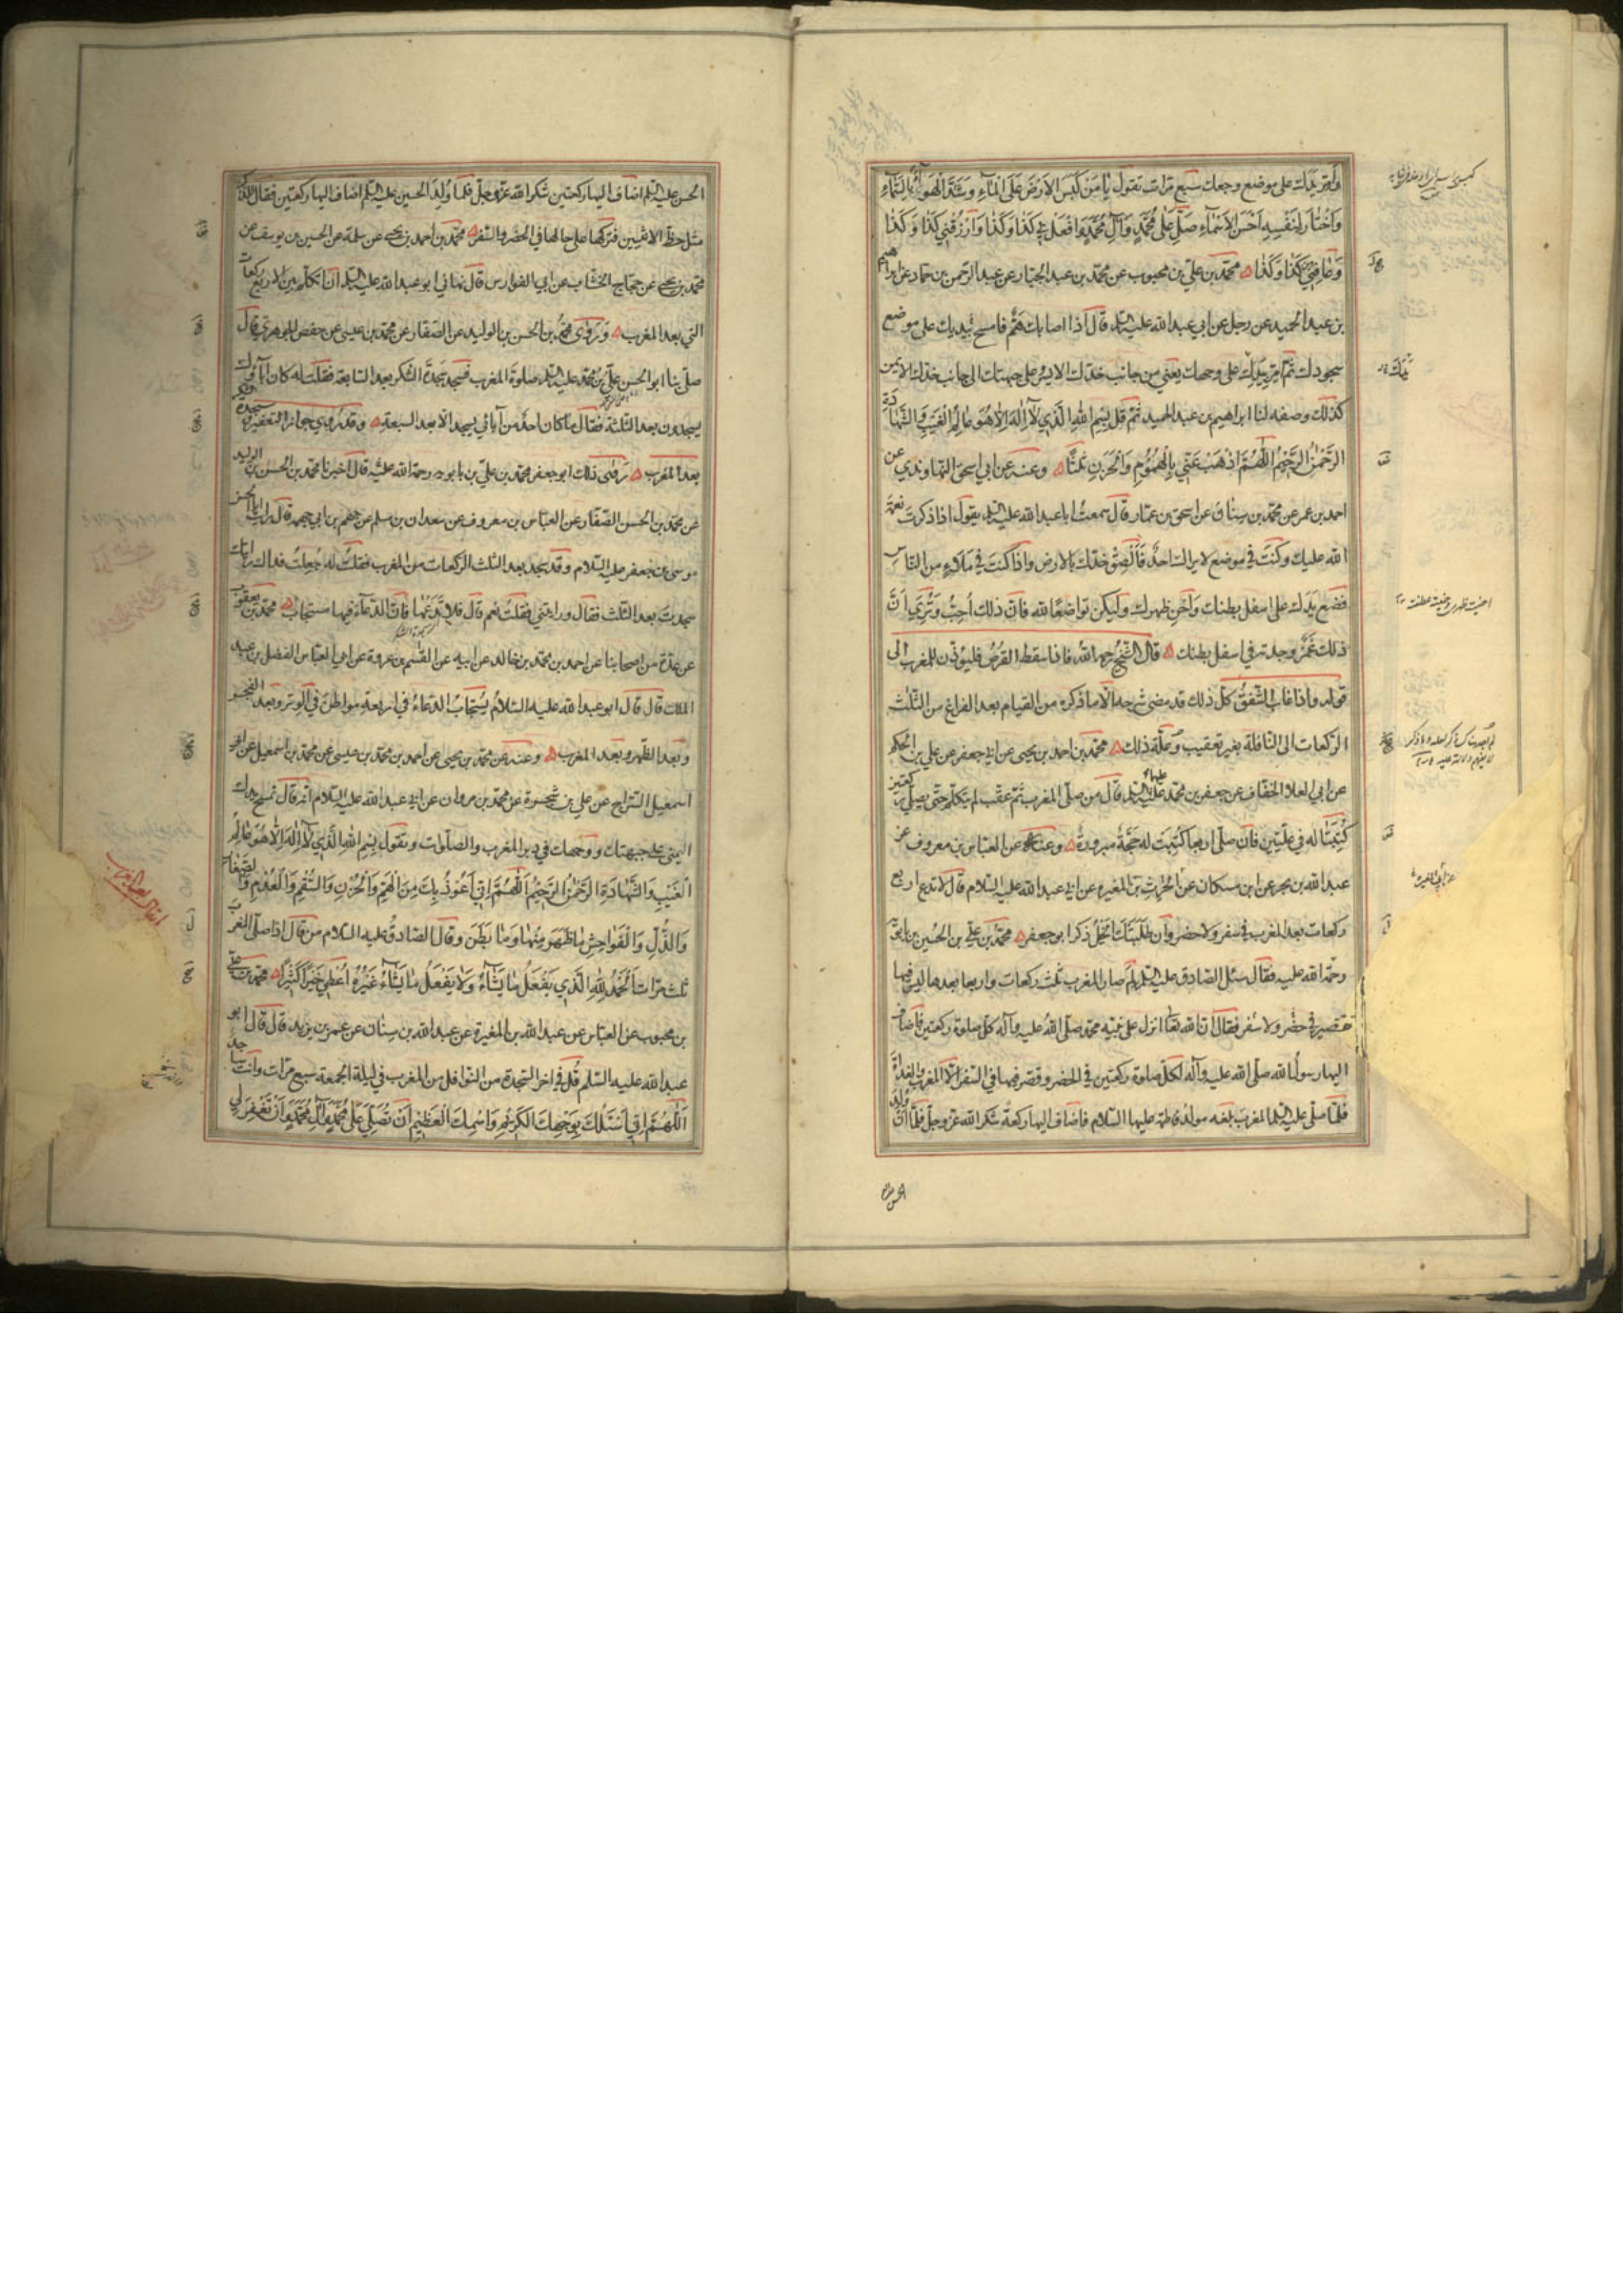 وامرر يدك على موضع وجعك سبع مرات تقول يا من كبس الارض على الماء وسد الهواء بالسماء
واختار لنفسه احسن الاسماء صل على محمد وآل محمد وافعل بي كذا وكذا وارزقني كذا وكذا
وعافني من كذا وكذا محمد بن علي بن محبوب عن محمد بن عبد الجبار عن عبد الرحمن بن حماد عن ابراهيم
بن عبد الحميد عن رجل عن ابي عبد الله عليه السلم قال اذا اصابك هم فامسح يدك على موضع
سجودك ثم امرر يدك على وجهك يعني من جانب خدك الايسر على جبهتك الى جانب خدك الايمن
كذلك وصفه لنا ابراهيم بن عبد الحميد ثم قل بسم الله الذي لا اله الا هو عالم الغيب والشهادة
الرحمن الرحيم اللهم اذهب عني بالهموم والحزن ثلثا وعنه عن ابي اسحق النهاوندي عن
احمد بن عمر عن محمد بن سنان عن اسحق بن عمار قال سمعت ابا عبد الله عليه السلم يقول اذا ذكرت نعمة
الله عليك وكنت في موضع لا يراك احد فالصق خدك بالارض واذا كنت في ملاء من الناس
فضع يدك على اسفل بطنك واحن ظهرك وليكن تواضعا لله فان ذلك احب وترى ان
ذلك غمز وجدته في اسفل بطنك قال الشيخ رحمه الله فاذا سقط القرص فليؤذن للمغرب الى
قوله واذا غاب الشفق كل ذلك قد مضى شرحه الا ما ذكره من القيام بعد الفراغ من الثلث
الركعات الى النافلة بغير تعقيب وعلة ذلك محمد بن احمد بن يحيى عن ابي جعفر عن علي بن الحكم
عن ابي العلا الخفاف عن جعفر بن محمد عليهما السلم قال من صلى المغرب ثم عقب لم يتكلم حتى يصلي ركعتين
كتبتا له في عليين فان صلى اربعا كتبت له حجة مبرورة وعنه عن العباس بن معروف عن
عبد الله بن بحر عن ابن مسكان عن الحرث بن المغيرة عن ابي عبد الله عليه السلام قال لا تدع اربع
ركعات بعد المغرب في سفر ولا حضر وان طلبتك الخيل ذكر ابو جعفر محمد بن علي بن الحسين بن بابويه
رحمة الله عليه فقال سئل الصادق عليه السلم لم صار المغرب ثلث ركعات واربعا بعدها ليس فيها
تقصير في حضر ولا سفر فقال ان الله تعالى انزل على نبيه محمد صلى الله عليه وآله كل صلوة ركعتين فاضاف
اليها رسول الله صلى الله عليه وآله لكل صلوة ركعتين في الحضر وقصر فيها في السفر الا المغرب والغداة
فلما صلى عليه السلم المغرب بلغه مولد فاطمة عليها السلام فاضاف اليها ركعة شكرا لله عز وجل فلما ان ولد
الحسن عليه السلم اضاف اليها ركعتين شكرا لله عز وجل فلما ولد الحسين عليه السلم اضاف اليها ركعتين فقال للذكر
مثل حظ الانثيين فتركها على حالها في الحضر والسفر محمد بن احمد بن يحيى عن سلمة عن الحسين بن يوسف عن
محمد بن يحيى عن حجاج الخشاب عن ابي الفوارس قال نهاني ابو عبد الله عليه السلم ان اتكلم بين الاربع ركعات
التي بعد المغرب وروى محمد بن الحسن بن الوليد عن الصفار عن محمد بن عيسى عن حفص الجوهري قال
صلى بنا ابو الحسن علي بن محمد عليه السلم صلوة المغرب فسجد سجدة الشكر بعد السابعة فقلت له كان آباؤك
يسجدون بعد الثلثة فقال ما كان احد من آبائي يسجد الا بعد السبعة وقد روي جواز التعفير في سجدة
بعد المغرب روى ذلك ابو جعفر محمد بن علي بن بابويه رحمة الله عليه قال اخبرنا محمد بن الحسن بن الوليد
عن محمد بن الحسن الصفار عن العباس بن معروف عن سعدان بن مسلم عن جهم بن ابي جهمة قال رايت ابا الحسن
موسى بن جعفر عليه السلام وقد سجد بعد الثلث الركعات من المغرب فقلت له جعلت فداك رايتك
سجدت بعد الثلث فقال ورايتني فقلت نعم قال فلا تدعها فان الدعاء فيها مستجاب محمد بن يعقوب
عن عدة من اصحابنا عن احمد بن محمد بن خالد عن ابيه عن القسم بن عروة عن ابي العباس الفضل بن عبد
الملك قال قال ابو عبد الله عليه السلام يستجاب الدعاء في اربعة مواطن في الوتر وبعد الفجر
وبعد الظهر وبعد المغرب وعنه عن محمد بن يحيى عن احمد بن محمد بن عيسى عن محمد بن اسمعيل عن ابي
اسمعيل السراج عن علي بن شجرة عن محمد بن مروان عن ابي عبد الله عليه السلام انه قال تمسح بيدك
اليمنى على جبهتك ووجهك في دبر المغرب والصلوات وتقول بسم الله الذي لا اله الا هو عالم
الغيب والشهادة الرحمن الرحيم اللهم اني اعوذ بك من الهم والحزن والسقم والعدم والصغار
والذل والفواحش ما ظهر منها وما بطن وقال الصادق عليه السلام من قال اذا صلى المغرب
ثلث مرات الحمد لله الذي يفعل ما يشاء ولا يفعل ما يشاء غيره اعطي خيرا كثيرا محمد بن علي
بن محبوب عن العباس عن عبد الله بن المغيرة عن عبد الله بن سنان عن عمر بن يزيد قال قال ابو
عبد الله عليه السلم قل في اخر السجدة من النوافل من المغرب في ليلة الجمعة سبع مرات وانت ساجد
اللهم اني اسئلك بوجهك الكريم واسمك العظيم ان تصلي على محمد وآل محمد وان تغفر لي